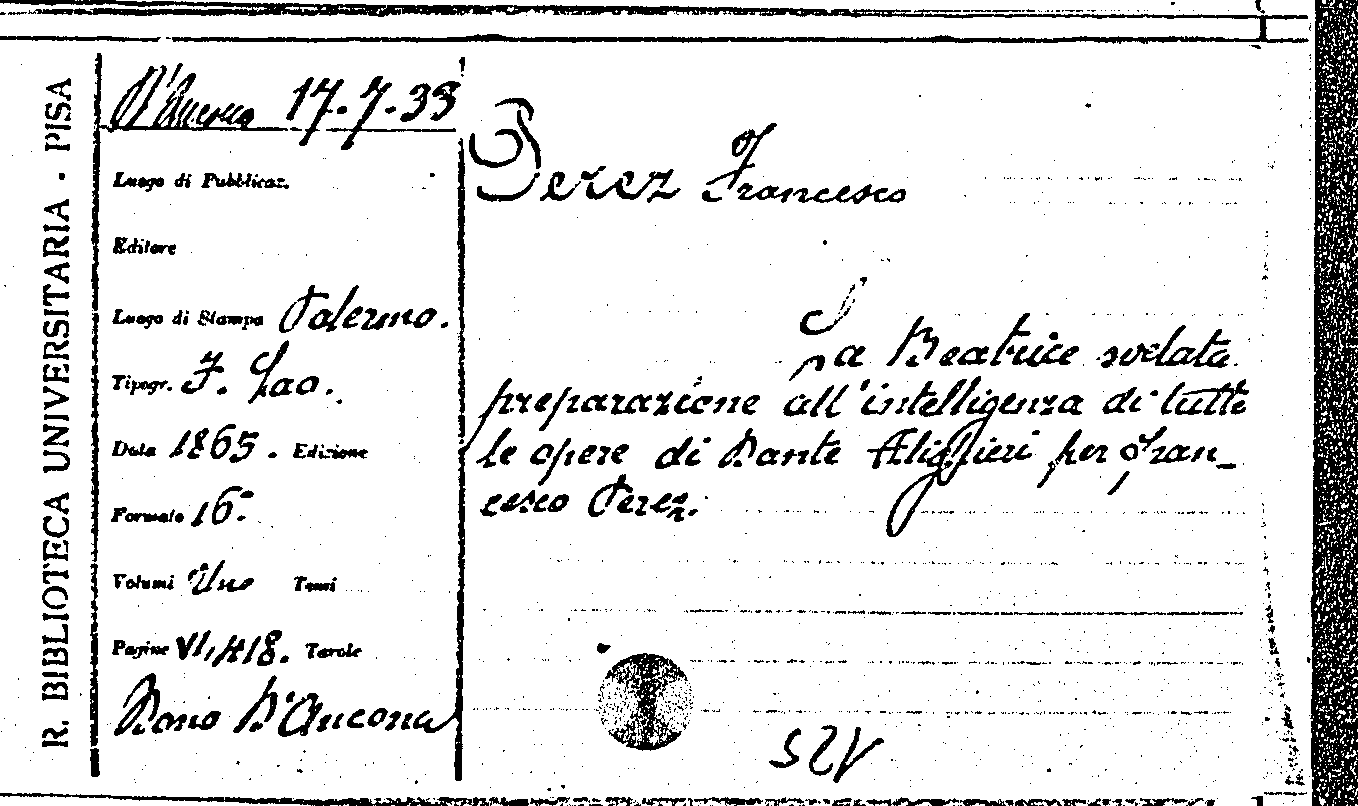 R. BIBLIOTECA UNIVERSITARIA - PISA
D'Ancona 17.7.33
Luogo di Pubblicaz.
Editore
Luogo di Stampa Palermo.
Tipogr. F. Lao.
Data 1865. Edizione
Formato 16º
Volumi Uno Tomi
Pagine VI, 418. Tavole
Dono D'Ancona
Perez Francesco
La Beatrice svelata
preparazione all'intelligenza di tutte
le opere di Dante Alighieri per Fran_
cesco Perez.